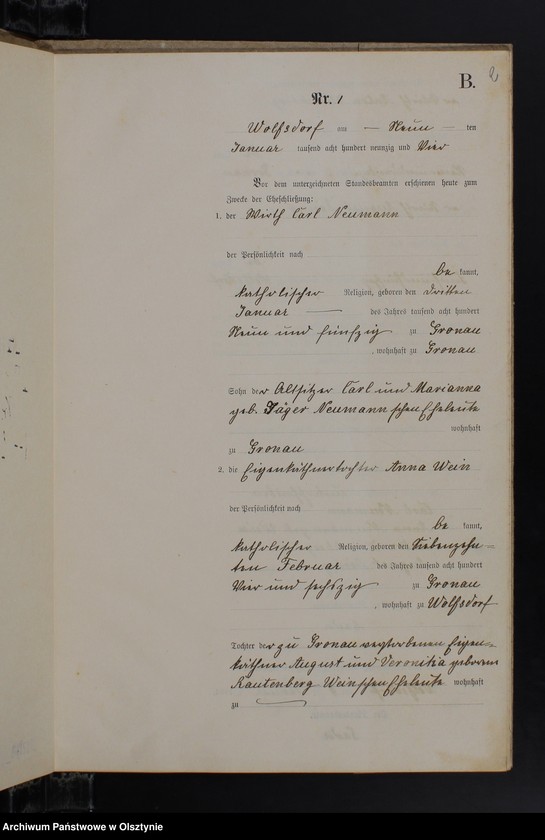 B.
2
Nr. 1
Wolfsdorf am — Neun — ten
Januar tausend acht hundert neunzig und Vier
Vor dem unterzeichneten Standesbeamten erschienen heute zum
Zwecke der Eheschließung:
1. der Wirth Carl Neumann
der Persönlichkeit nach
be kannt,
katholischer Religion, geboren den dritten
Januar — des Jahres tausend acht hundert
Neun und fünfzig zu Gronau
, wohnhaft zu Gronau
Sohn der Altsitzer Carl und Marianna
geb. Jäger Neumann'schen Eheleute
wohnhaft
zu Gronau
2. die Eigenkäthnertochter Anna Wein
der Persönlichkeit nach
be kannt,
katholischer Religion, geboren den Siebenzehn=
ten Februar des Jahres tausend acht hundert
Vier und sechszig zu Gronau
, wohnhaft zu Wolfsdorf
Tochter der zu Gronau verstorbenen Eigen=
käthner August und Veronika geborene
Rautenberg Wein'schen Eheleute wohnhaft
zu —
Archiwum Państwowe w Olsztynie